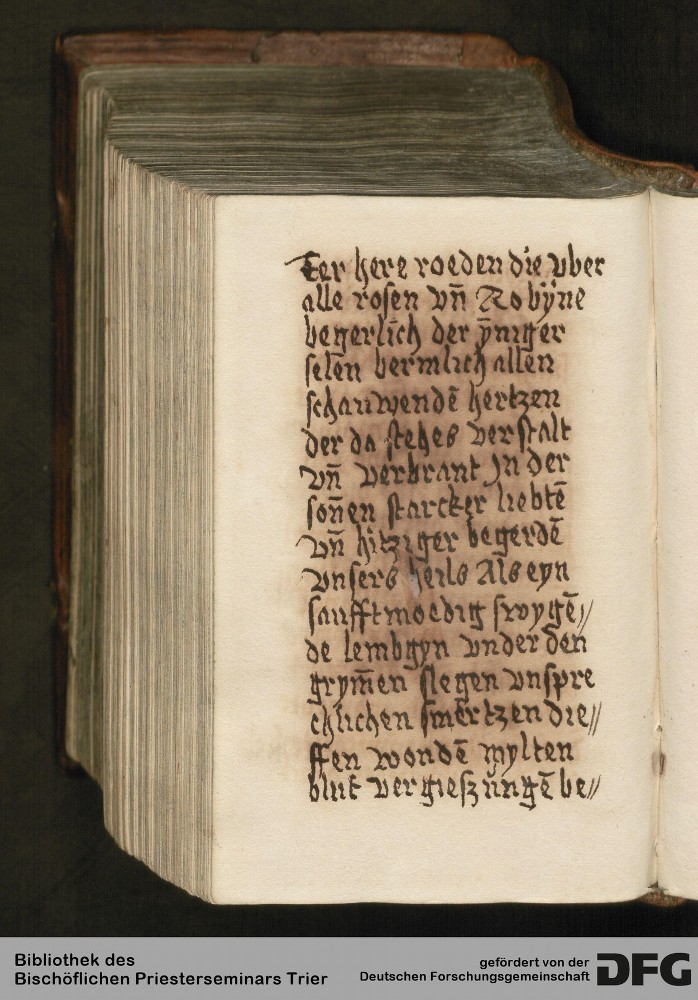 Ter here roeden die vber
alle rosen vn̄ Robÿne
begerlich der ÿniger
selen bermlich allen
schauwendē hertzen
der da stehes verstalt
vn̄ verbrant Jn der
son̄en starcker liebtē
vn̄ hitziger begerdē
vnsers heils Als eyn
sanfftmoedig swygē//
de lembgyn vnder den
grym̄en slegen vnspre
chlichen smertzen die//
ffen wondē mylten
blut vergieszungē be//
Bibliothek des
Bischöflichen Priesterseminars Trier
gefördert von der
Deutschen Forschungsgemeinschaft DFG